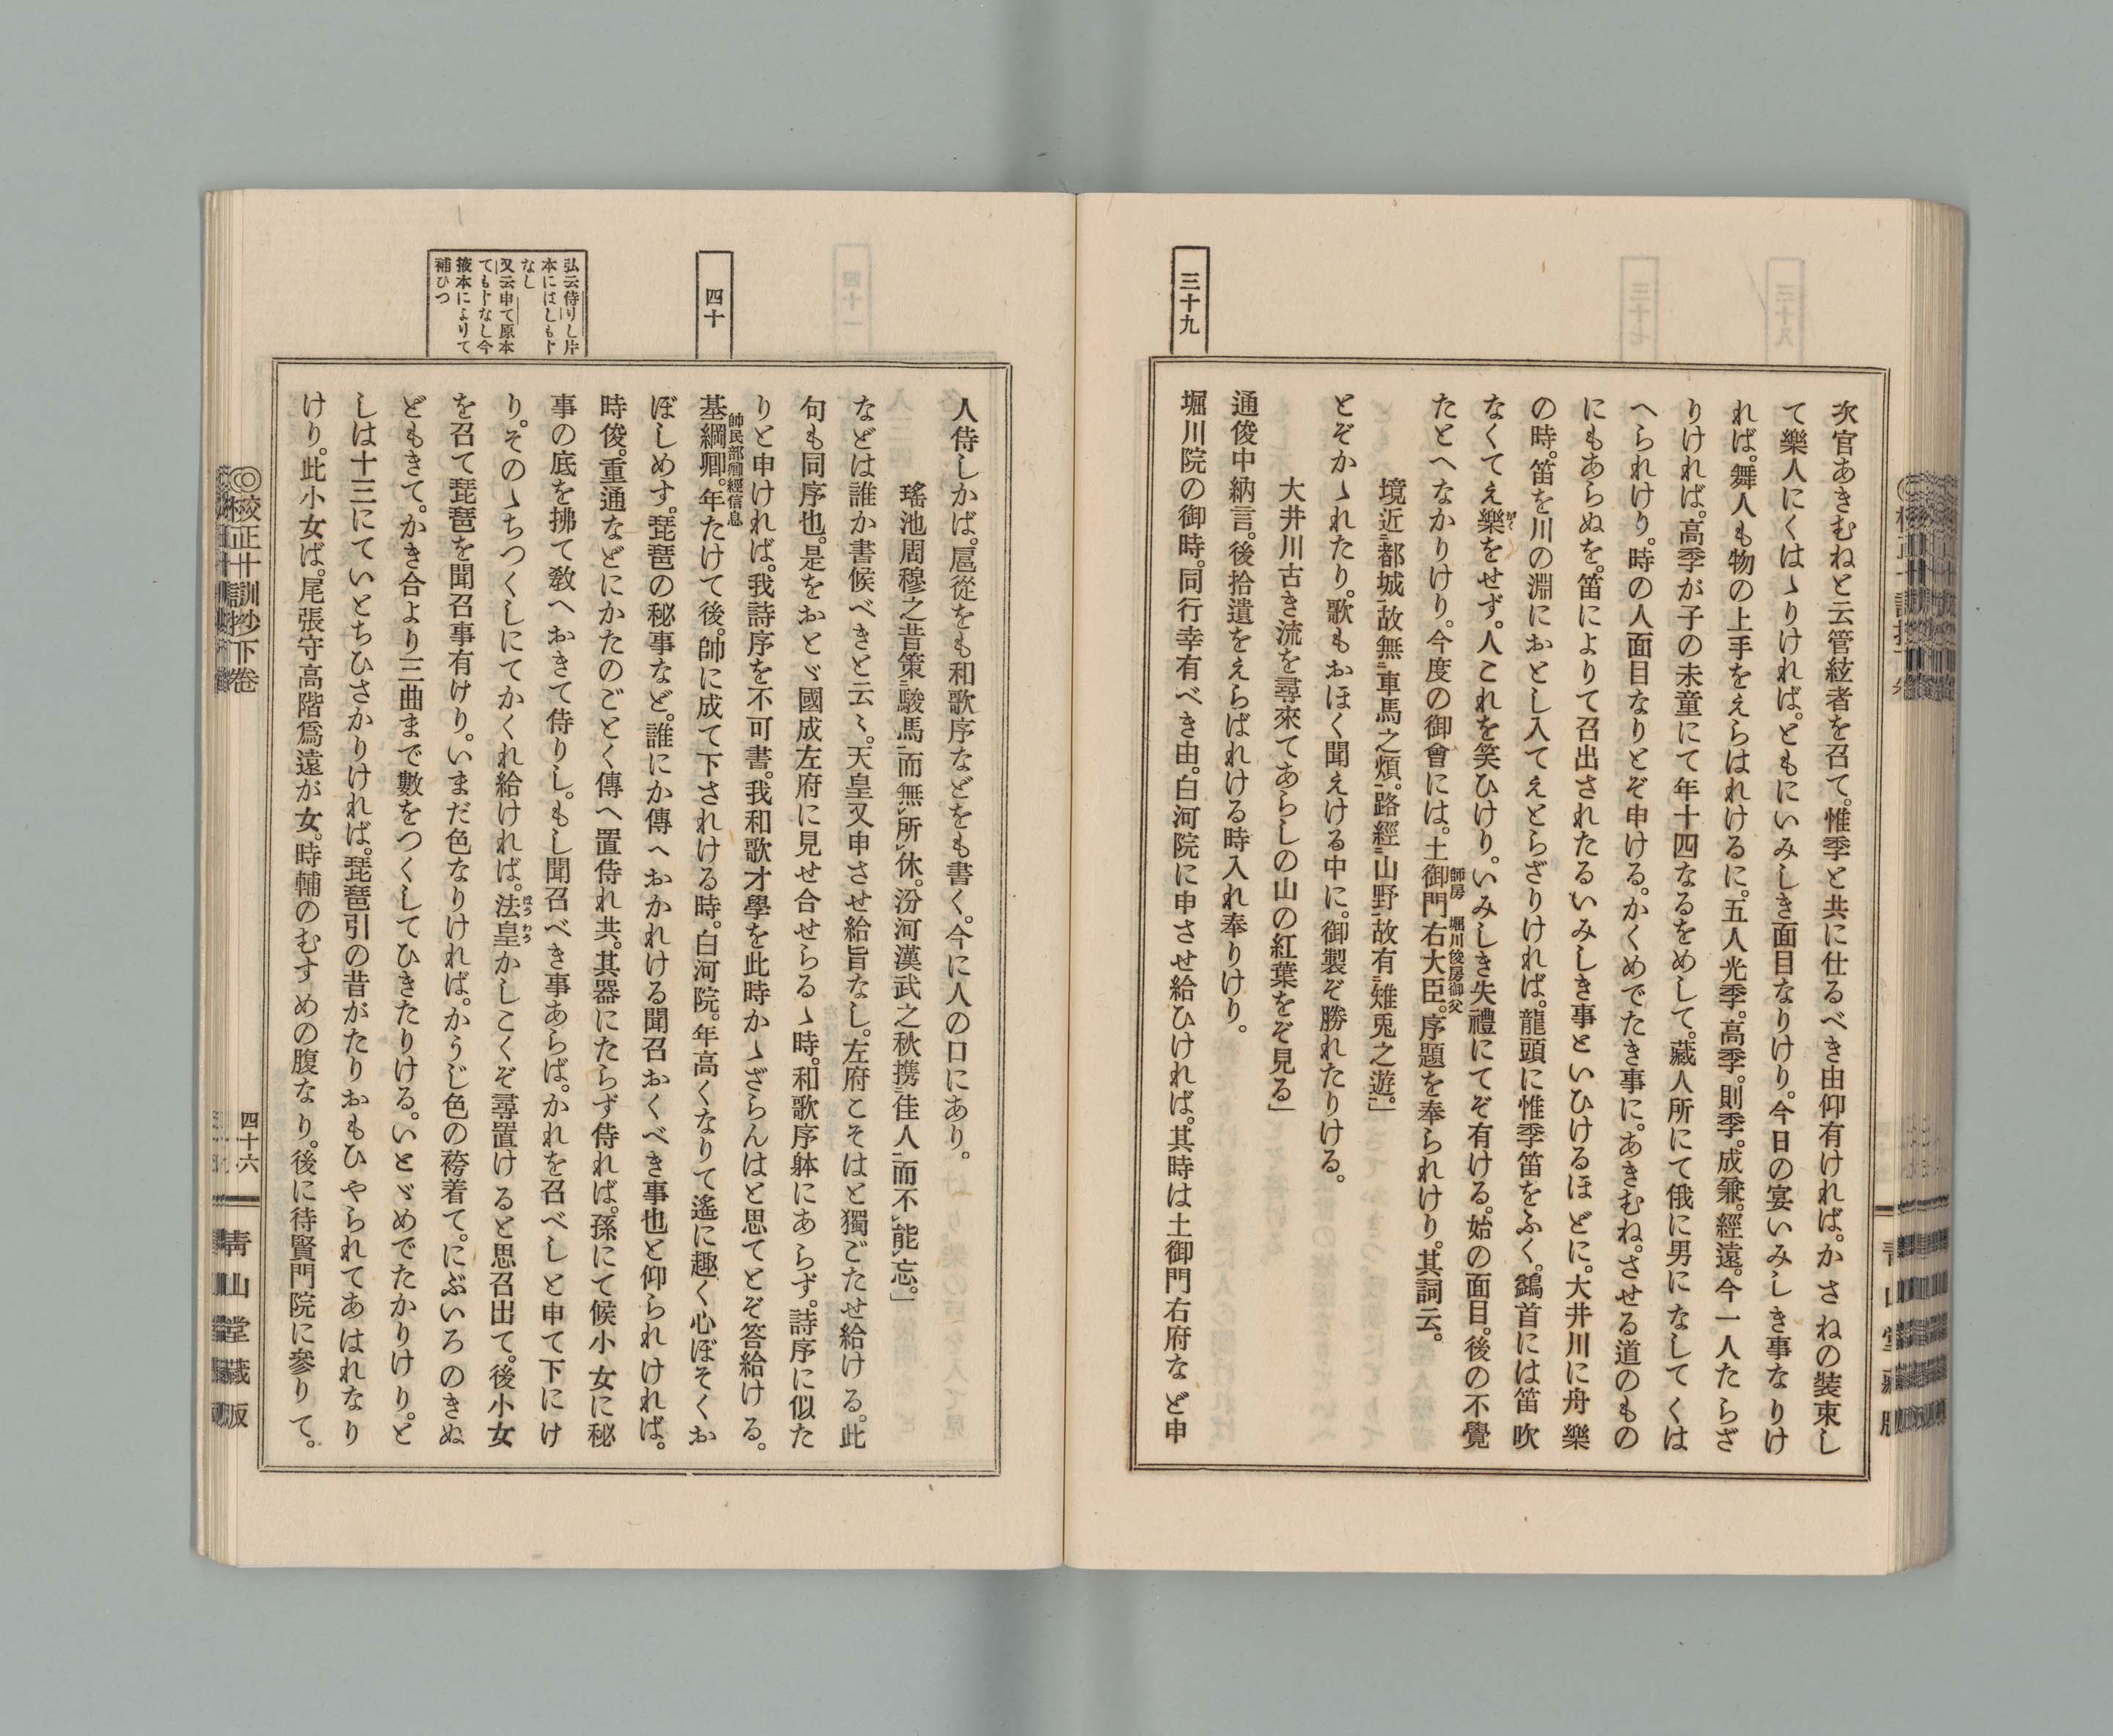 次官あきむねと云管絃者を召て。惟季と共に仕るべき由仰有ければ。かさねの裝束し
て樂人にくはゝりければ。ともにいみしき面目なりけり。今日の宴いみしき事なりけ
れば。舞人も物の上手をえらはれけるに。五人光季。高季。則季。成兼。經遠。今一人たらざ
りければ。高季が子の未童にて年十四なるをめして。藏人所にて俄に男になしてくは
へられけり。時の人面目なりとぞ申ける。かくめでたき事に。あきむね。させる道のもの
にもあらぬを。笛によりて召出されたるいみしき事といひけるほどに。大井川に舟樂
の時。笛を川の淵におとし入てえとらざりければ。龍頭に惟季笛をふく。鷁首には笛吹
なくてえ樂をせず。人これを笑ひけり。いみしき失禮にてぞ有ける。始の面目。後の不覺
がく
たとへなかりけり。今度の御會には。土御門右大臣。序題を奉られけり。其詞云。
師房 堀川俊房御父
境近二都城一故無二車馬之煩一。路經二山野一故有二雉兎之遊一。」
とぞかゝれたり。歌もおほく聞えける中に。御製ぞ勝れたりける。
大井川古き流を尋來てあらしの山の紅葉をぞ見る」
通俊中納言。後拾遺をえらばれける時入れ奉りけり。
三十九
堀川院の御時。同行幸有べき由。白河院に申させ給ひければ。其時は土御門右府など申
人侍しかば。扈從をも和歌序などをも書く。今に人の口にあり。
瑤池周穆之昔策二駿馬一而無レ所レ休。汾河漢武之秋携二佳人一而不レ能レ忘。」
などは誰か書候べきと云々。天皇又申させ給旨なし。左府こそはと獨ごたせ給ける。此
句も同序也。是をおとゞ國成左府に見せ合せらるゝ時。和歌序躰にあらず。詩序に似た
りと申ければ。我詩序を不可書。我和歌才學を此時かゝざらんはと思てとぞ答給ける。
四十
基綱卿。年たけて後。帥に成て下されける時。白河院。年高くなりて遙に趣く心ぼそくお
帥民部卿經信息
ぼしめす。琵琶の秘事など。誰にか傳へおかれける聞召おくべき事也と仰られければ。
時俊。重通などにかたのごとく傳へ置侍れ共。其器にたらず侍れば。孫にて候小女に秘
事の底を拂て敎へおきて侍りし。もし聞召べき事あらば。かれを召べしと申て下にけ
り。そのゝちつくしにてかくれ給ければ。法皇かしこくぞ尋置けると思召出て。後小女
ほうわう
を召て琵琶を聞召事有けり。いまだ色なりければ。かうじ色の袴着て。にぶいろのきぬ
どもきて。かき合より三曲まで數をつくしてひきたりける。いとゞめでたかりけり。と
しは十三にていとちひさかりければ。琵琶引の昔がたりおもひやられてあはれなり
けり。此小女ば。尾張守高階爲遠が女。時輔のむすめの腹なり。後に待賢門院に參りて。
弘云侍りし片
本にはしもナ
なし
又云申て原本
てもナなし今
掖本によりて
補ひつ
◎校正十訓抄下卷
四十六
靑山堂藏版